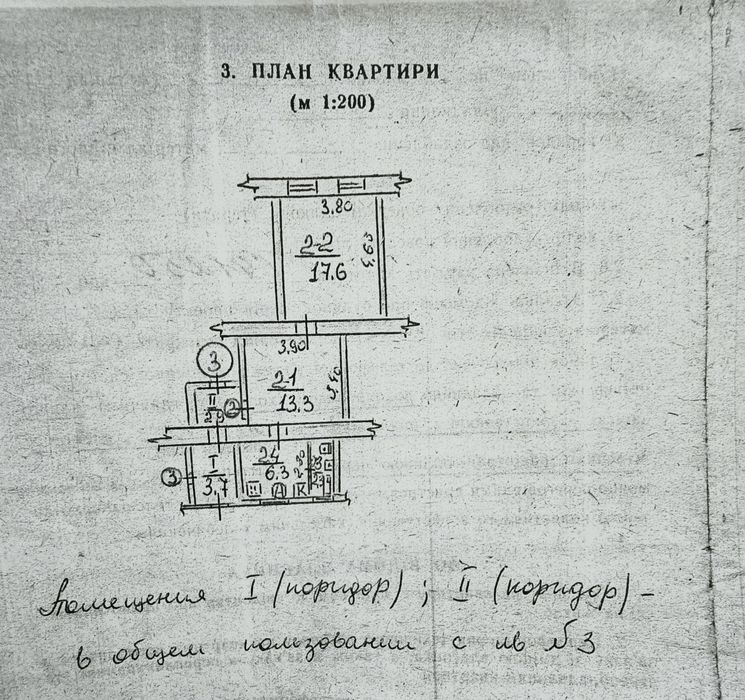 3. ПЛАН КВАРТИРИ
(м 1:200)
3.80
2-2
17.6
4.63
3.90
3
2-1
13.3
3.40
II
2.9
2
I
3.7
3
2-4
6.3
К
Помещения I (коридор) ; II (коридор) –
в общем пользовании с кв №3